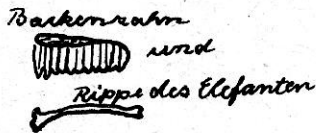 Backenzahn
und
Rippe des Elefanten